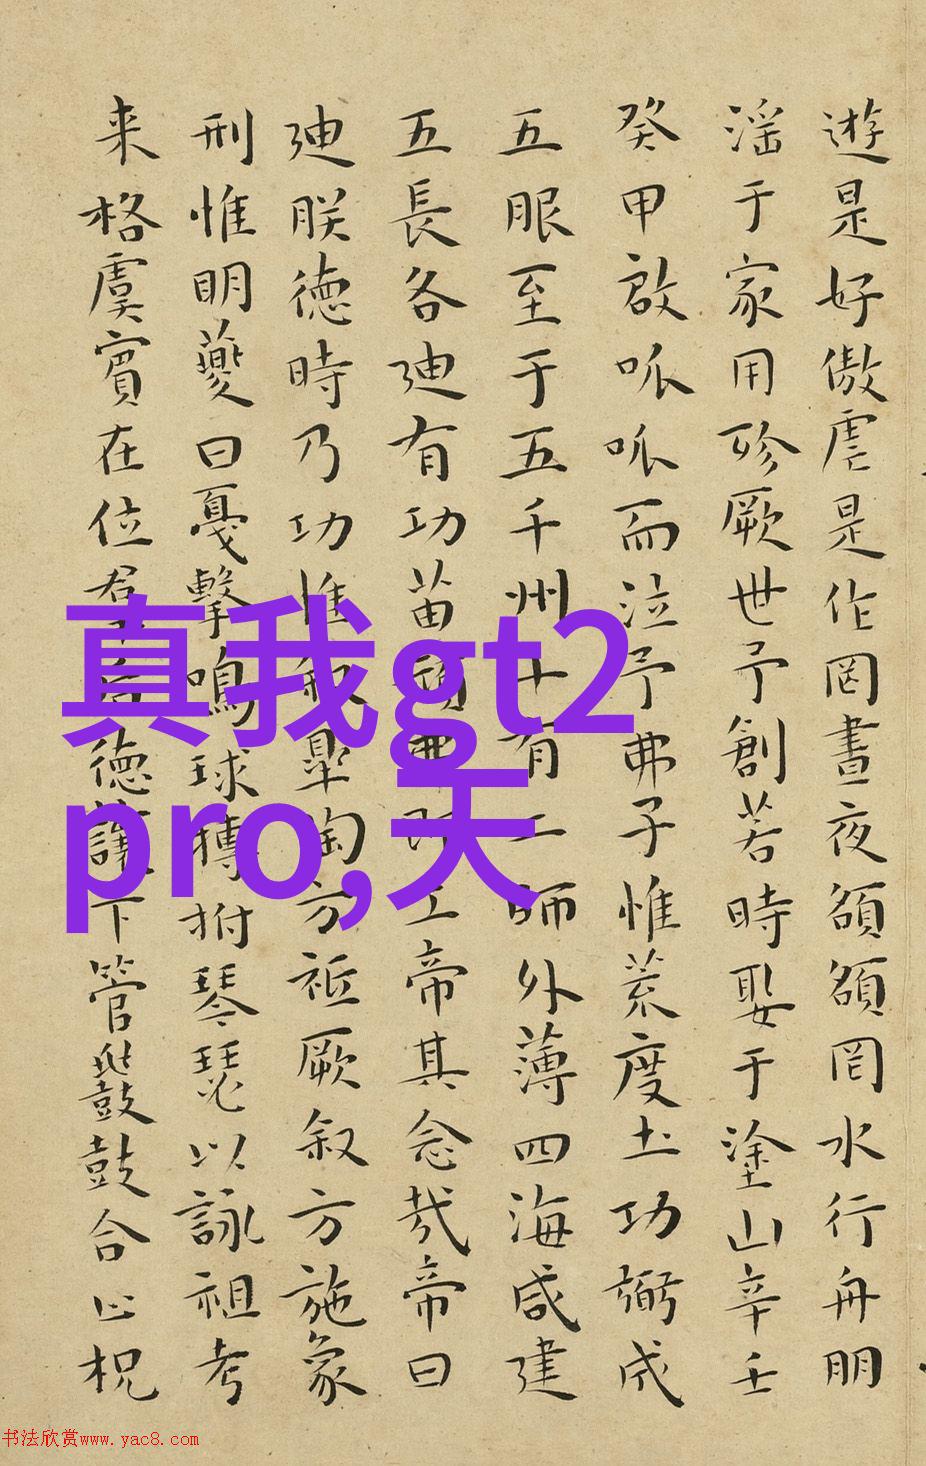 遊是好傲虐是作罔晝夜頟頟罔水行舟朋
淫于家用殄厥世予創若時娶于塗山辛壬
癸甲啟呱呱而泣予弗子惟荒度土功弼成
五服至于五千州十有二師外薄四海咸建
五長各迪有功苗頑弗即工帝其念哉帝曰
迪朕德時乃功惟叙皐陶方祗厥叙方施象
刑惟明夔曰戛擊鳴球搏拊琴瑟以詠祖考
来格虞賓在位羣后德讓下管鼗鼓合止柷
真我gt2
pro,天
书法欣赏www.yac8.com